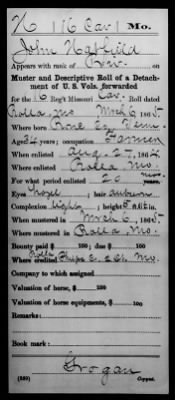 H | 16 Cav | Mo.
John Hatfield
Appears with rank of Priv.
Muster and Descriptive Roll of a Detach-
ment of U. S. Vols. forwarded
for the 16 Reg't Missouri Cav. Roll dated
Rolla, Mo March 6, 1865.
Where born Co, Tenn.
Age 34 years; occupation Farmer
When enlisted Aug. 27, 1864
Where enlisted Rolla Mo.
For what period enlisted 20 mos.
Eyes hazel; hair auburn
Complexion light; height 5 ft. in.
When mustered in March 6, 1865
Where mustered in Rolla, Mo.
Bounty paid $ 100; due $ 100
Where credited Rolla Phelps Co. Mo.
Company to which assigned
Valuation of horse, $ 100
Valuation of horse equipments, $ 100
Remarks:
Book mark:
Grogan
(339) Copyist.